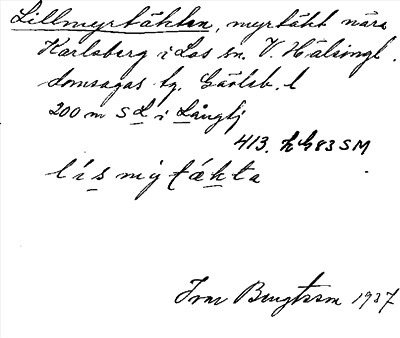 Lillmyrtäkten, myrtäkt nära
Karlsberg i Los sn. V. Hälsingl.
domsagas tg. Gävleb. l
200 m S L i Långtj
413. h G83 SM
Ivar Bengtsson 1937